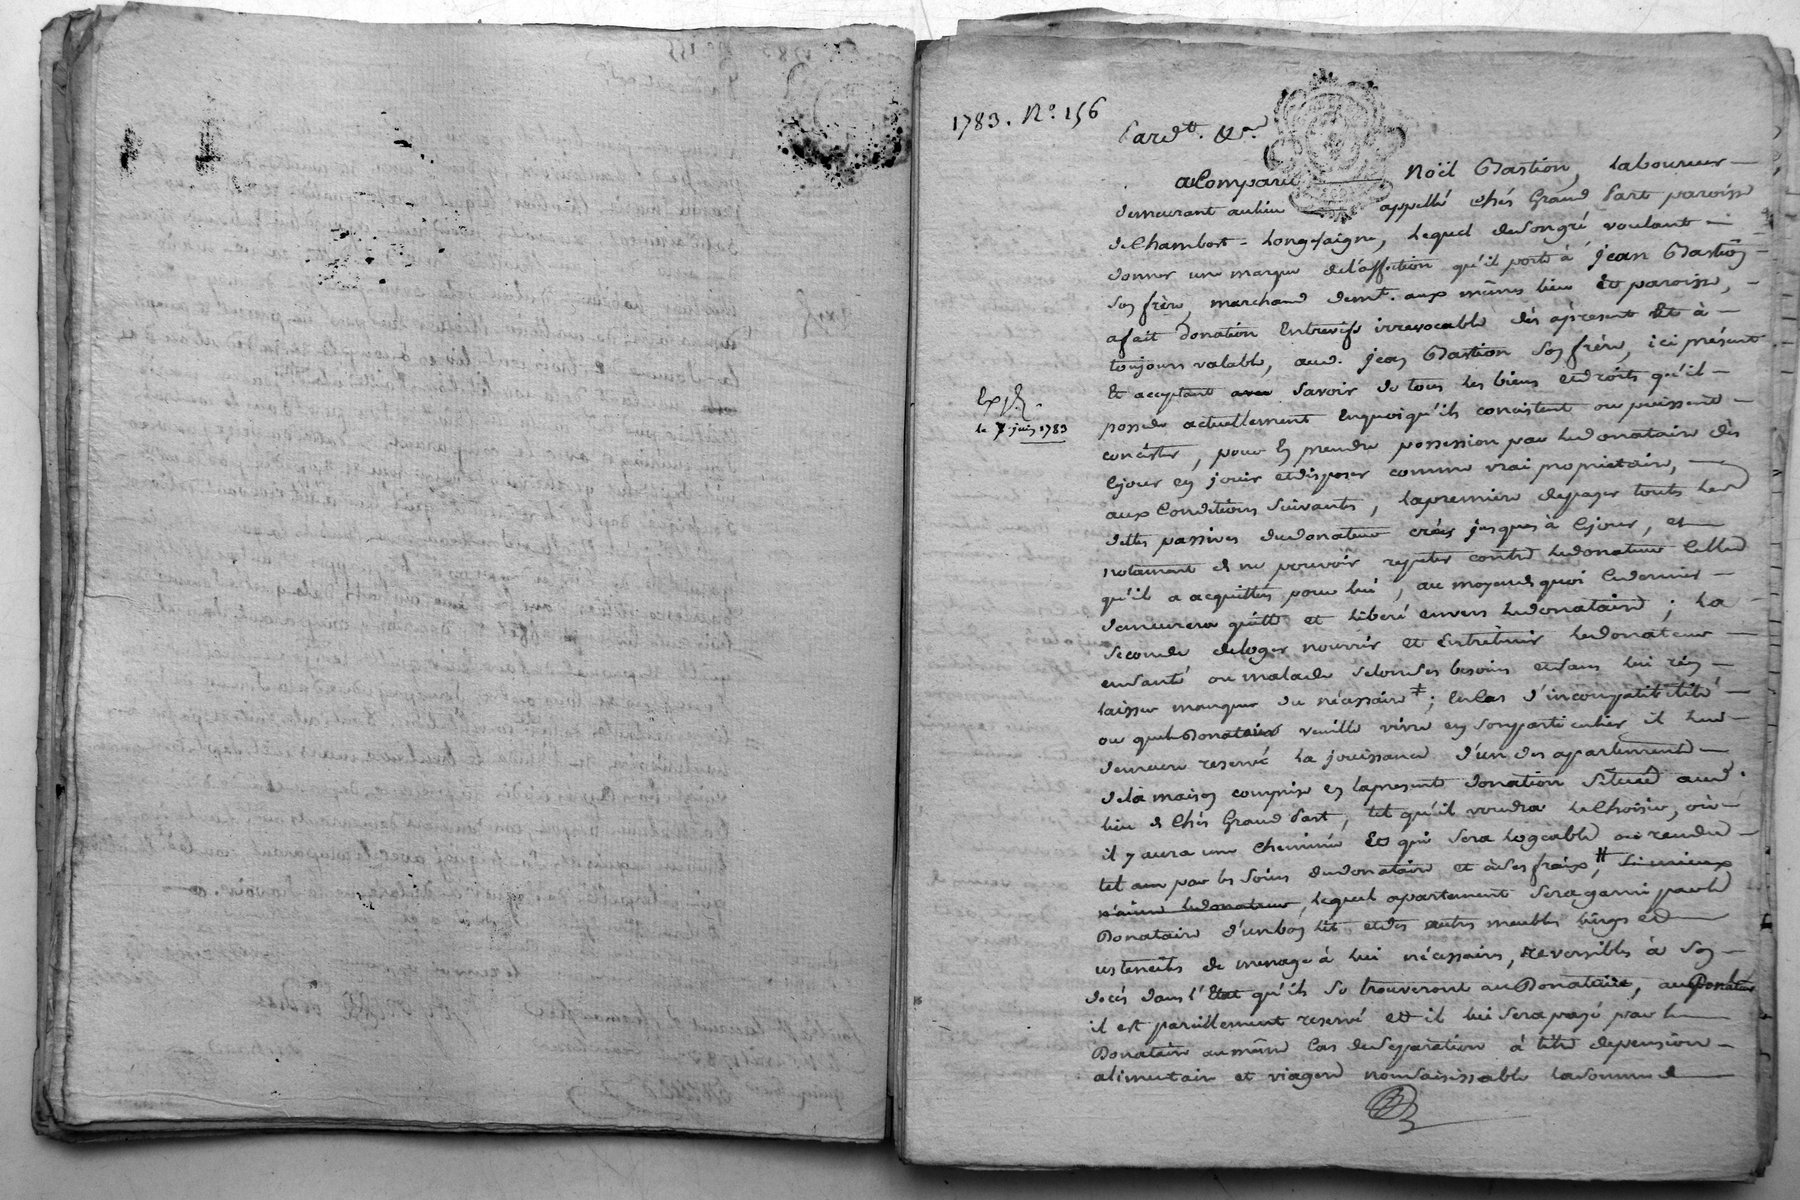 1783. N.º 156
Pard.t &c.a
a Comparu Noël Bastion, Laboureur
demeurant au lieu appellé chés Grand Sart paroisse
de Chambost = Longesaigne, Lequel de son gré voulant
donner une marque de l'affection qu'il porte à Jean Bastion
son frère, marchand demt. aux mêmes lieu et paroisse,
a fait donation Entrevifs irrevocable dès apresent et à
toujours valable, aud. Jean Bastion son frère, ici présent
Et acceptant avec Savoir de tous les biens et droits qu'il
possede actuellement En quoi qu'ils concistent ou puissent
concister, pour en prendre possession par led. donataire dès
cejour en jouir et disposer comme vrai propriétaire,
aux Conditions Suivantes, la premiere de payer toutes les
dettes passives dud. donateur créées jusques à cejour, et
notament de ne pouvoir repeter contre led. donateur Celles
qu'il a acquittées pour lui, au moyen de quoi ce dernier
demeurera quitte et liberé envers led. donataire ; La
Seconde de loger nourrir et Entretenir led. donateur
en santé ou malade Selon ses besoins et sans lui rien
laisser manquer du nécessaire ‡ ; En Cas d'incompatibilité
ou que le Donateur veuille vivre en son particulier il lui
demeure reservé La jouissance d'un des apartements
de la maison comprise en la present donation Située aud.
lieu de Chés Grand Sart, tel qu'il voudra le Choisir, où
il y aura une cheminée Et qui Sera logeable ou rendu
tel par les Soins dud. donataire et à Ses fraix, # Si mieux
n'aime led. donateur, lequel apartement Sera garni par le
Donataire d'un bon lit et des autres meubles linges et
ustenciles de menage à lui nécessaires, reversibles à Son
décès dans l'Etat qu'ils Se trouveront au Donataire, au Donateur
il est pareillement reservé et il lui Sera payé par le
Donataire au même Cas de Separation à titre de pension
alimentaire et viagere non Saisissable la Somme de
Exp.
le 7 juin 1783